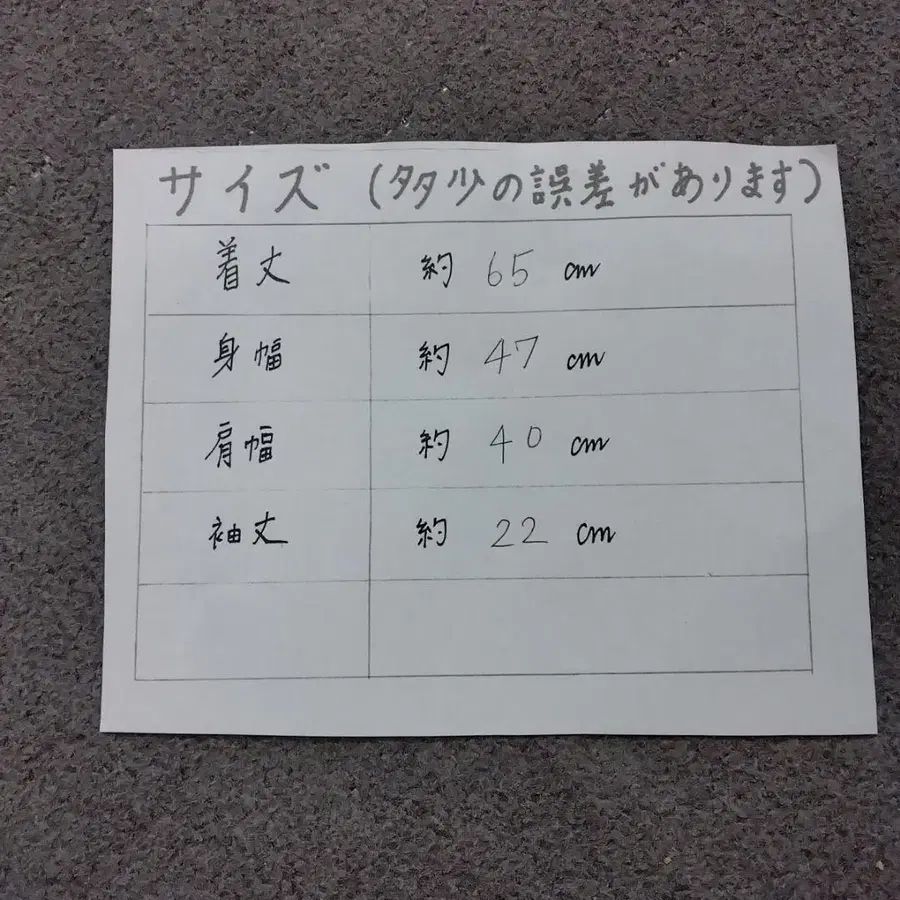 サイズ (多少の誤差があります)
着丈 約 65 cm
身幅 約 47 cm
肩幅 約 40 cm
袖丈 約 22 cm